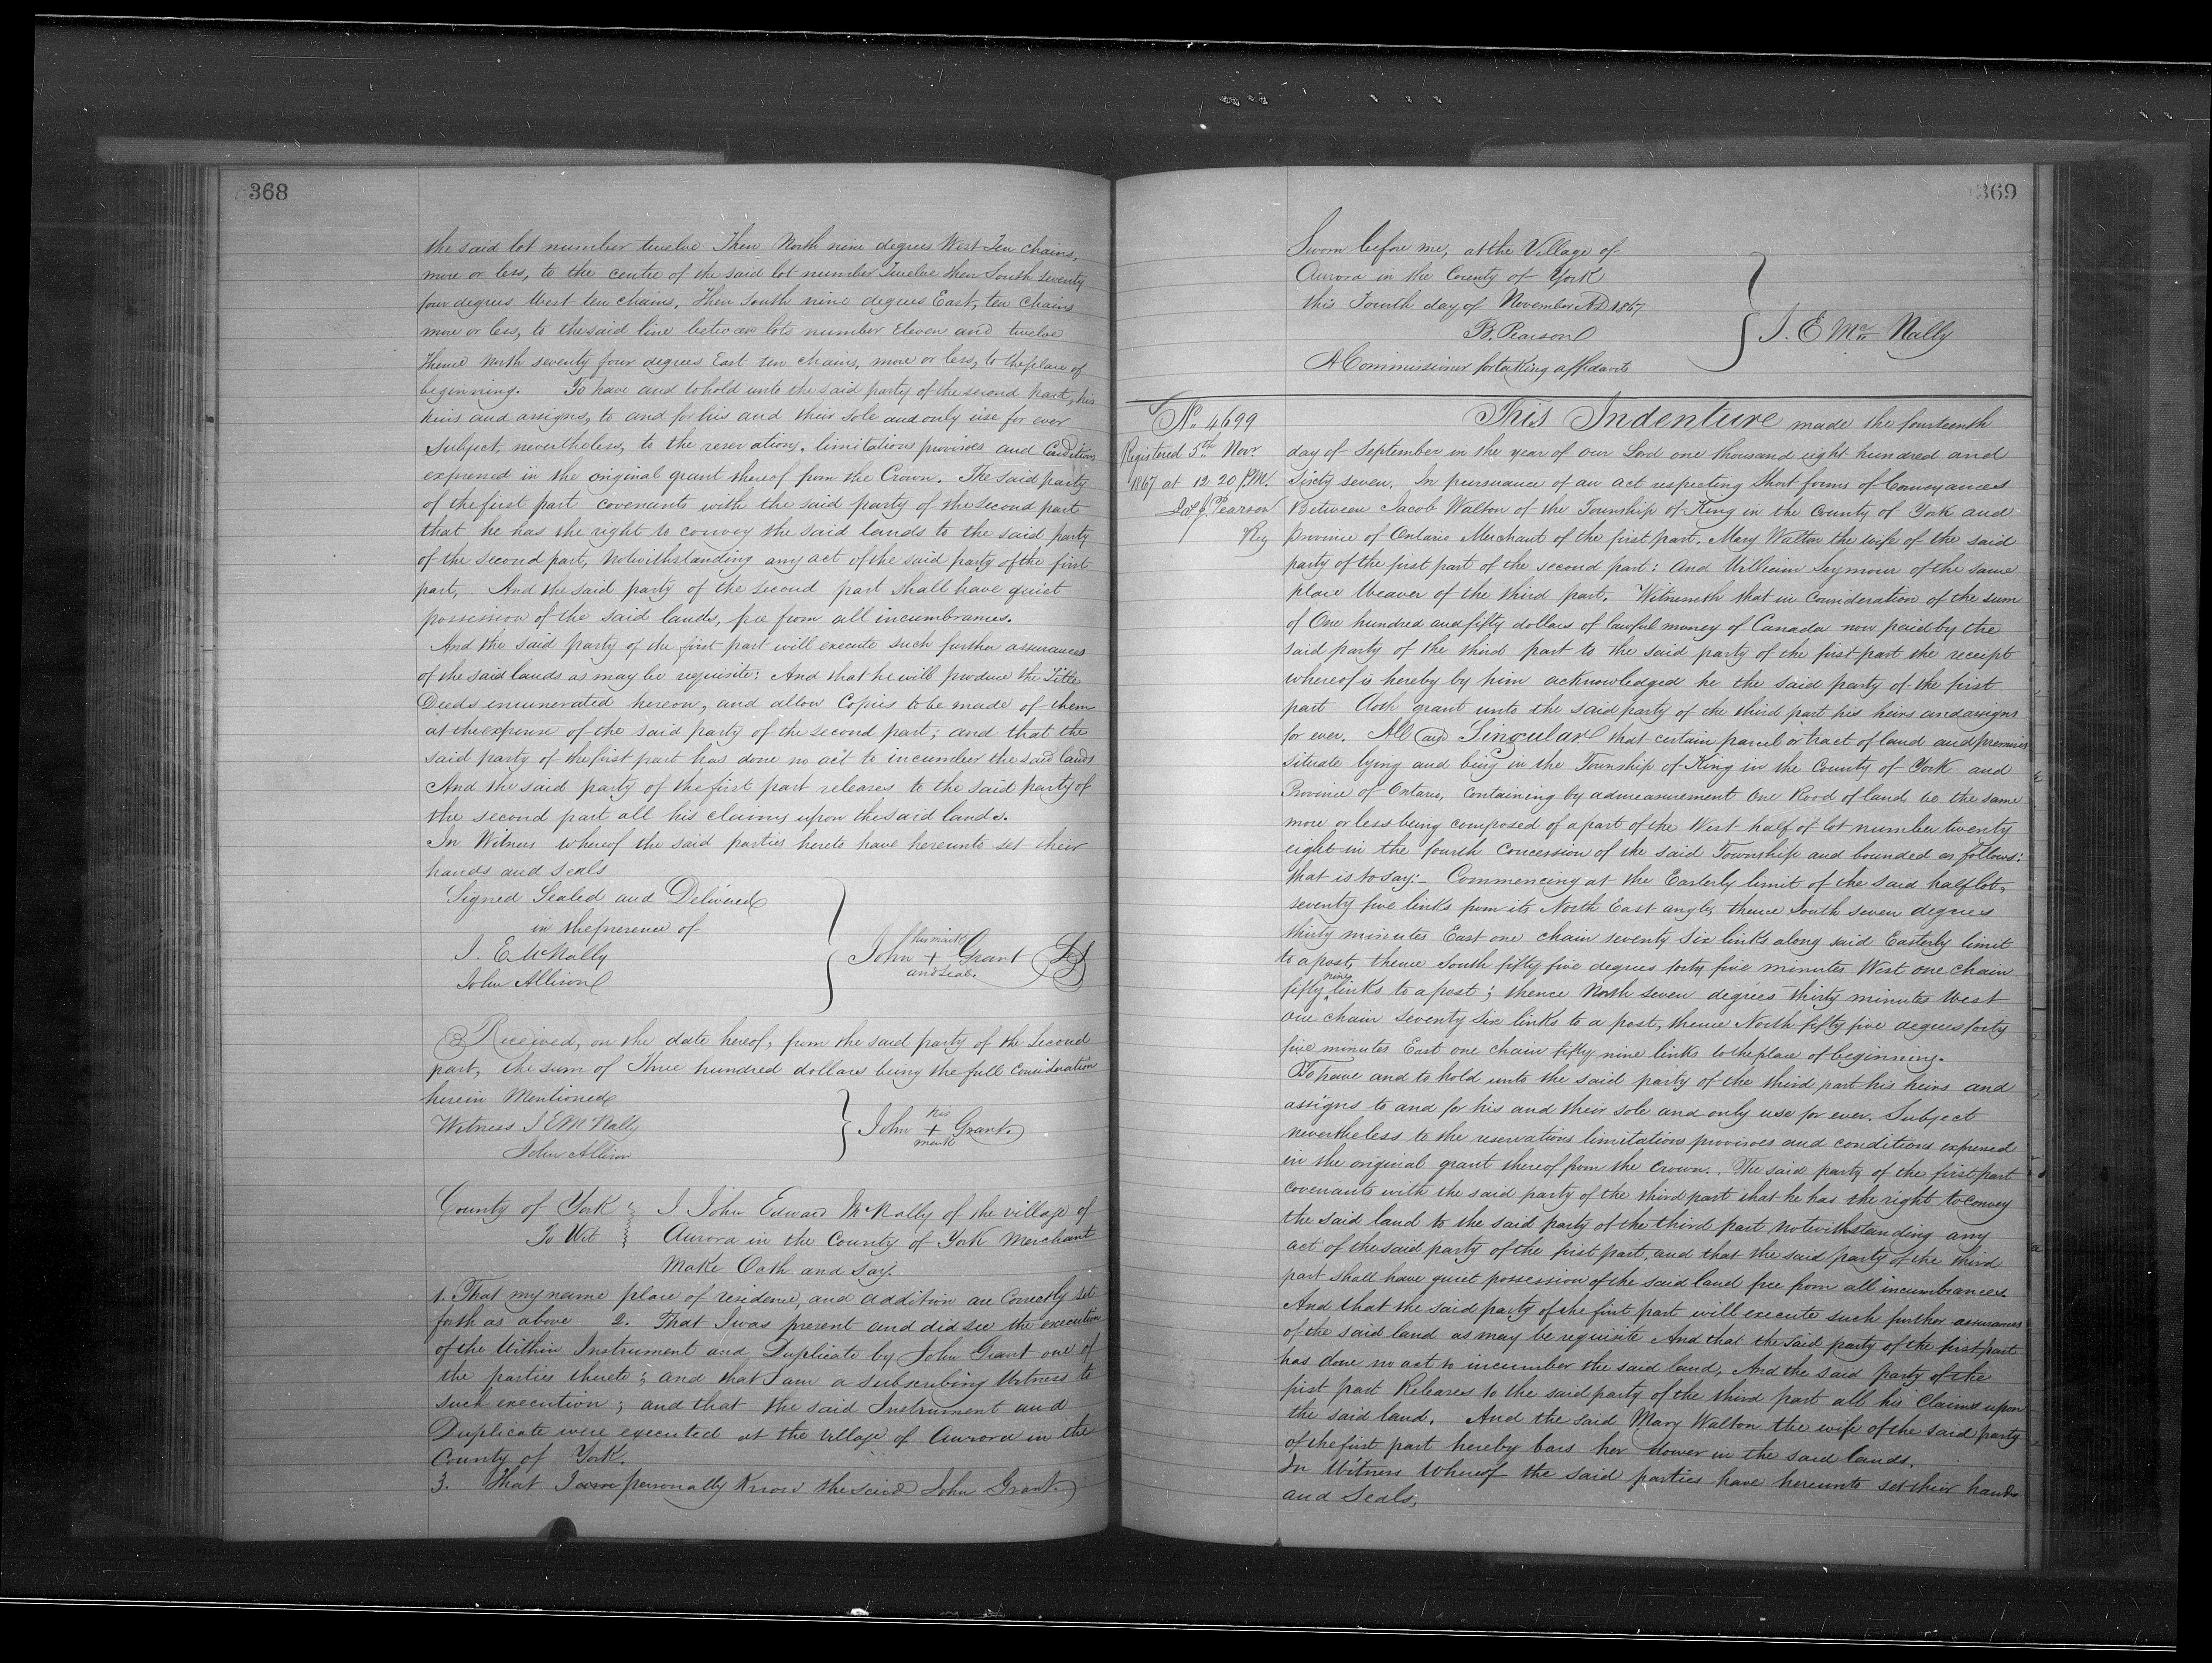 368
the said lot number twelve Then North nine degrees West Ten chains,
more or less, to the centre of the said lot number Twelve then South seventy
four degrees West ten chains, Then South nine degrees East, ten chains
more or less, to the said line between lots number Eleven and twelve
Thence North seventy four degrees East ten chains, more or less, to the place of
beginning. To have and to hold unto the said party of the second part, his
heirs and assigns, to and for his and their sole and only use for ever
Subject, nevertheless, to the reservations, limitations provisoes and Conditions
expressed in the original grant thereof from the Crown. The said party
of the first part covenants with the said party of the second part
that he has the right to convey the said lands to the said party
of the second part, Notwithstanding any act of the said party of the first
part, And the said party of the second part shall have quiet
possession of the said lands, free from all incumbrances.
And the said party of the first part will execute such further assurances
of the said lands as may be requisite: And that he will produce the Title
Deeds enumerated hereon, and allow Copies to be made of them
at the expense of the said party of the second part; and that the
said party of the first part has done no act to incumber the said lands
And the said party of the first part releases to the said party of
the second part all his claims upon the said lands.
In Witness whereof the said parties hereto have hereunto set their
hands and seals
Signed Sealed and Delivered
in the presence of
J. E McNally
John Allison
his mark
John + Grant LS
and seal.
Received, on the date hereof, from the said party of the Second
part, the sum of Three hundred dollars being the full consideration
herein Mentioned
Witness J E McNally
John Allison
his
John + Grant.
mark
County of York
To Wit
I John Edward McNally of the village of
Aurora in the County of York Merchant
Make Oath and say.
1. That my name place of residence, and addition are Correctly set
forth as above 2. That I was present and did see the execution
of the Within Instrument and Duplicate by John Grant one of
the parties thereto; and that I am a subscribing Witness to
such execution; and that the said Instrument and
Duplicate were executed at the Village of Aurora in the
County of York.
3. That I am personally Know the said John Grant
369
Sworn before me, at the Village of
Aurora in the County of York
this Fourth day of November AD 1867
B. Pearson
A Commissioner for taking affidavits
J. E Mc Nally
No 4699
Registered 5th Novr
1867 at 12 20 P.M.
Pearson
Reg
This Indenture made the fourteenth
day of September in the year of our Lord one thousand eight hundred and
Sixty seven. In pursuance of an act respecting Short forms of Conveyances
Between Jacob Walton of the Township of King in the County of York and
Province of Ontario Merchant of the first part. Mary Walton the wife of the said
party of the first part of the second part: And William Seymour of the same
place Weaver of the third part. Witnesseth that in Consideration of the sum
of One hundred and fifty dollars of lawful money of Canada now paid by the
said party of the third part to the said party of the first part the receipt
whereof is hereby by him acknowledged he the said party of the first
part doth grant unto the said party of the third part his heirs and assigns
for ever. All and Singular that certain parcel or tract of land and premises
situate lying and being in the Township of King in the County of York and
Province of Ontario, containing by admeasurement One Rood of land be the same
more or less being composed of a part of the West half of lot number twenty
eight in the fourth Concession of the said Township and bounded as follows:
that is to say:- Commencing at the Easterly limit of the said half lot,
seventy five links from its North East angle, thence South seven degrees
thirty minutes East one chain seventy six links along said Easterly limit
to a post, thence South fifty five degrees forty five minutes West one chain
nine
fifty links to a post; thence North seven degrees thirty minutes West
one chain seventy six links to a post, thence North fifty five degrees forty
five minutes East one chain fifty nine links to the place of beginning.
To have and to hold unto the said party of the third part his heirs and
assigns to and for his and their sole and only use for ever. Subject
nevertheless to the reservations limitations provisoes and conditions expressed
in the original grant thereof from the Crown. The said party of the first part
covenants with the said party of the third part that he has the right to convey
the said land to the said party of the third part notwithstanding any
act of the said party of the first part, and that the said party of the third
part shall have quiet possession of the said land free from all incumbrances.
And that the said party of the first part will execute such further assurances
of the said land as may be requisite And that the said party of the first part
has done no act to incumber the said land, And the said party of the
first part Releases to the said party of the third part all his Claims upon
the said land. And the said Mary Walton the wife of the said party
of the first part hereby bars her dower in the said lands.
In Witness Whereof the said parties have hereunto set their hands
and Seals,